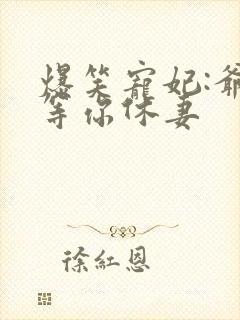 爆笑寵妃:爺
等你休妻
徐紅恩